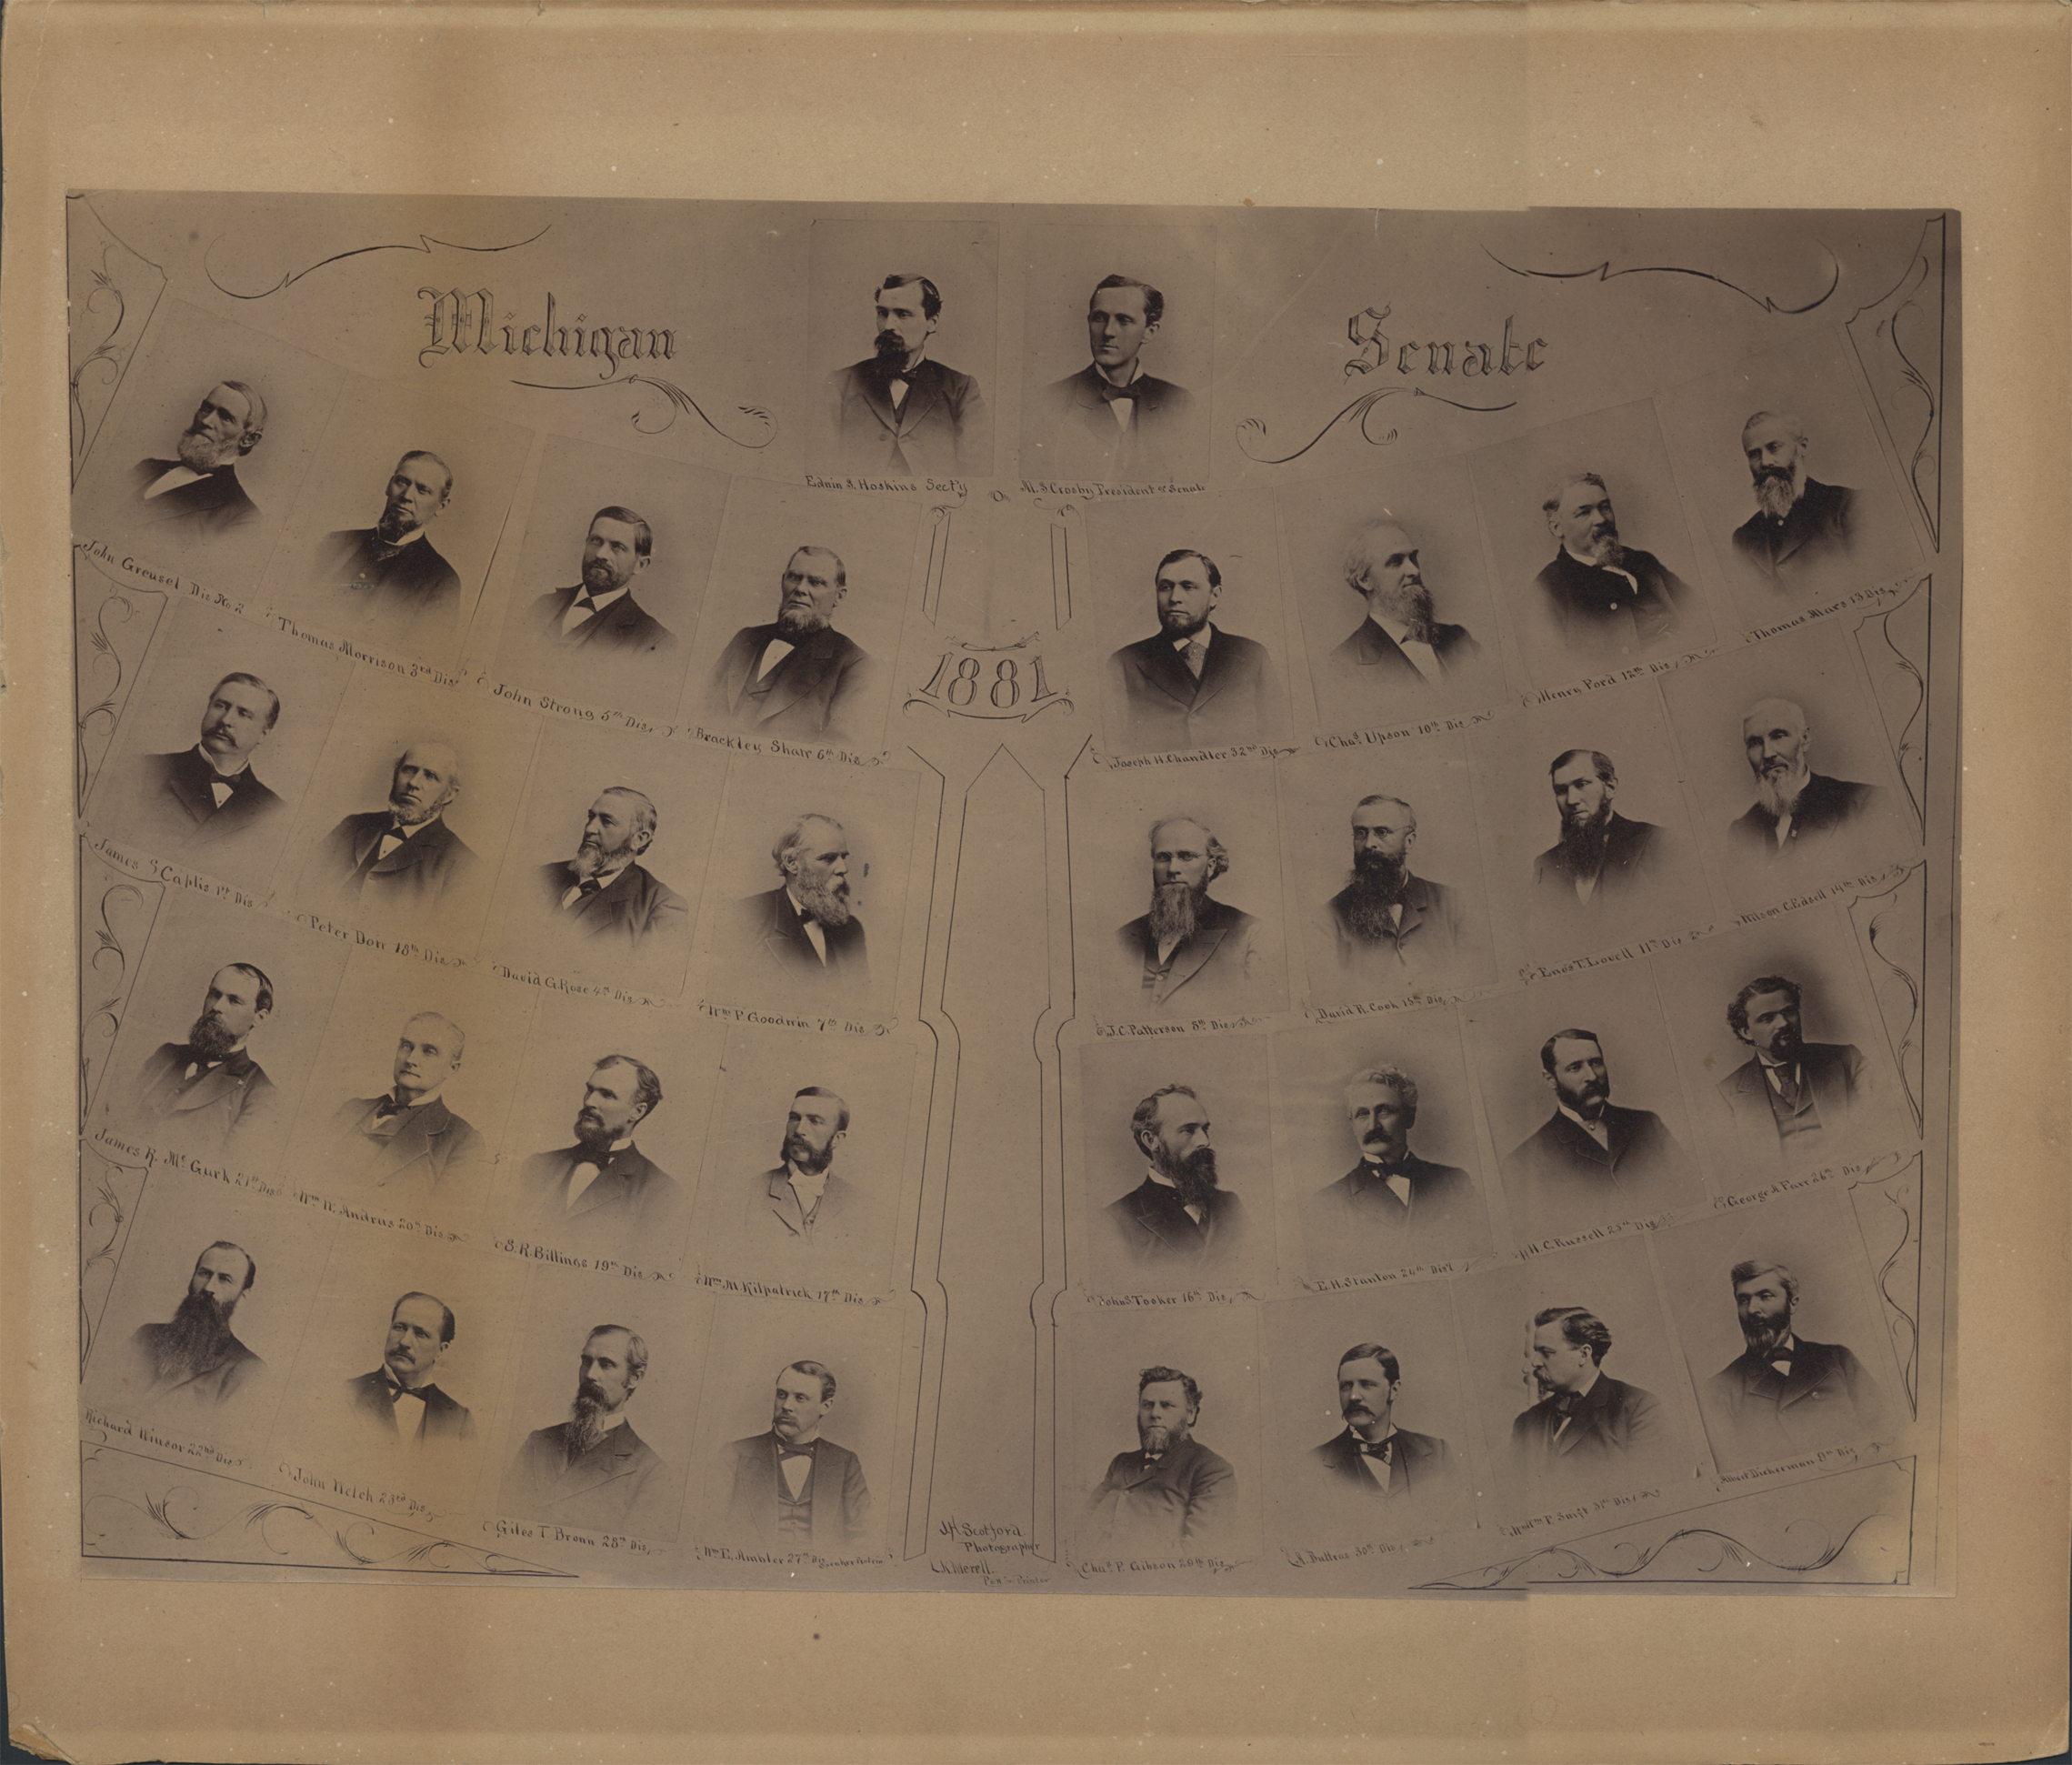 Michigan Senate
Edwin S. Hoskins Sect'y
M. S. Crosby President of Senate
1881
John Greusel Dis No 2
Thomas Morrison 3rd Dis
John Strong 5th Dis.
Brackley Shaw 6th Dis
Joseph H. Chandler 32nd Dis
Chas. Upson 10th Dis
Henry Ford 12th Dis
Thomas Mars 13 Dis
James Caplis 1st Dis
Peter Dow 18th Dis
David G. Rose 4th Dis
Wm P Goodwin 7th Dis
J. C. Patterson 8th Dis
David R. Cook 15th Dis
Enos T. Lovell 11th Dis
Wilson C. Edsell 14th Dis
James R. Mc Gurk 21st Dis
Wm W. Andrus 20th Dis
S. R. Billings 19th Dis
Wm M Kilpatrick 17th Dis
John S Tooker 16th Dis
E. H. Stanton 24th Dist
H. C. Russell 25th Dis
George A Farr 26th Dis
Richard Winsor 22nd Dis
John Welch 23rd Dis
Giles T Brown 28th Dis
Wm E. Ambler 27th Dis
Chas. P. Gibson 29th Dis
J. Buttras 30th Dis
Wm P Swift 31st Dis
Albert Dickerman 9th Dis
J. H. Scotford
Photographer
Merell
Pen Printer